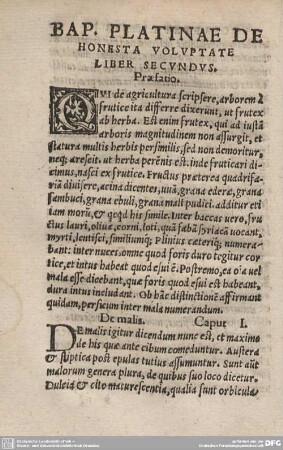 BAP. PLATINAE DE
HONESTA VOLVPTATE
LIBER SECVNDVS.
Præfatio.
QVI de agricultura scripsere, arborem à
frutice ita differre dixerunt, ut frutex
ab herba. Est enim frutex, qui ad iustā
arboris magnitudinem non assurgit, et
statura multis herbis persimilis, sed non demoritur,
neq; arescit. ut herba perēnis est. inde fruticari di
cimus, nasci ex frutice. Fructus præterea quadrifa-
riā diuisere, acina dicentes, uuā, grana ederæ, grana
sambuci, grana ebuli, grana mali pudici. additur et
iam morū, & qcqd his simile. Inter baccas uero, fru
ctus lauri, oliuæ, corni, loti, quā fabā syriacā uocant,
myrti, lentisci, similiumq; Plinius cæteriq; numera-
bant: inter nuces. omne quod foris duro tegitur cor-
tice, et intus habeat quod esui ē. Postremo, ea oīa uel
mala esse dicebant, quæ foris quod esui est habeant,
dura intus includant. Ob hāc distinctionē affirmant
quidam, persicum inter mala numerandum.
De malis. Caput I.
DE malis igitur dicendum nunc est, et maximo
de his quæ ante cibum comeduntur. Austera
& stiptica post epulas tutius assumuntur. Sunt aūt
malorum genera plura, de quibus suo loco dicetur.
Dulcia & cito maturescentia, qualia sunt orbicula